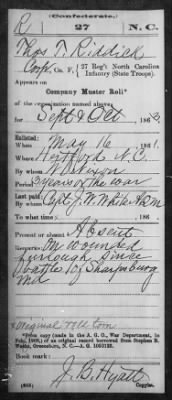 (Confederate.)
R 27 N.C.
Thos T. Riddick
Corp., Co. F, 27 Reg't North Carolina Infantry (State Troops).
Appears on
Company Muster Roll
of the organization named above,
for Sept & Oct, 186
Enlisted:
When May 16, 1861.
Where Hertford N.C.
By whom W. Nixon
Period 3 years or the war
Last paid:
By whom Capt J. W. White AQM
To what time
Present or absent Absent
Remarks: On wounded
furlough since
battle of Sharpsburg
Md
Original roll torn
(Copy made in the A. G. O., War Department, in
of an original record borrowed from Stephen B.
Weeks, Greensboro, N. C.
Book mark:
J. B. Hyatt
Copyist.